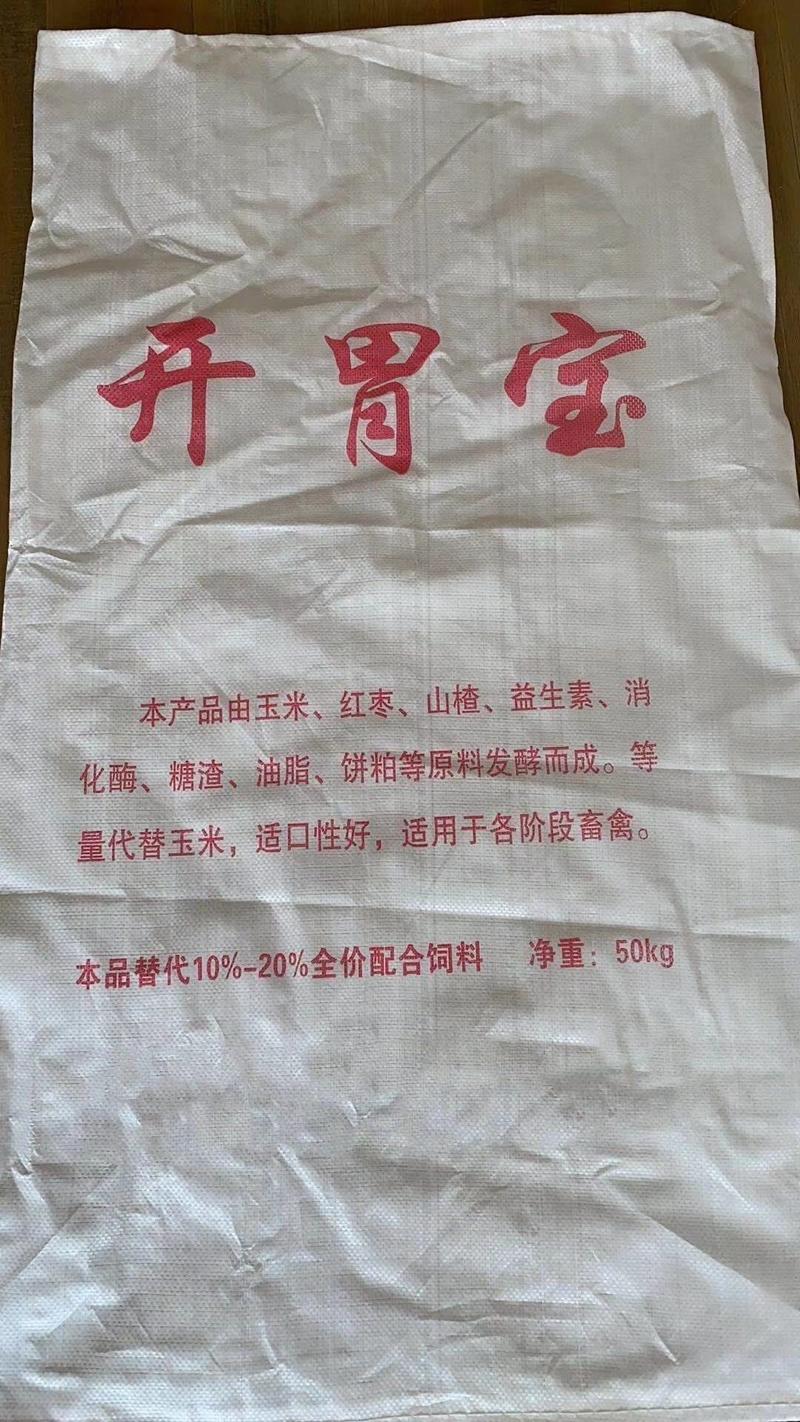 开胃宝
本产品由玉米、红枣、山楂、益生素、消
化酶、糖渣、油脂、饼粕等原料发酵而成。等
量代替玉米，适口性好，适用于各阶段畜禽。
本品替代10%-20%全价配合饲料 净重：50kg